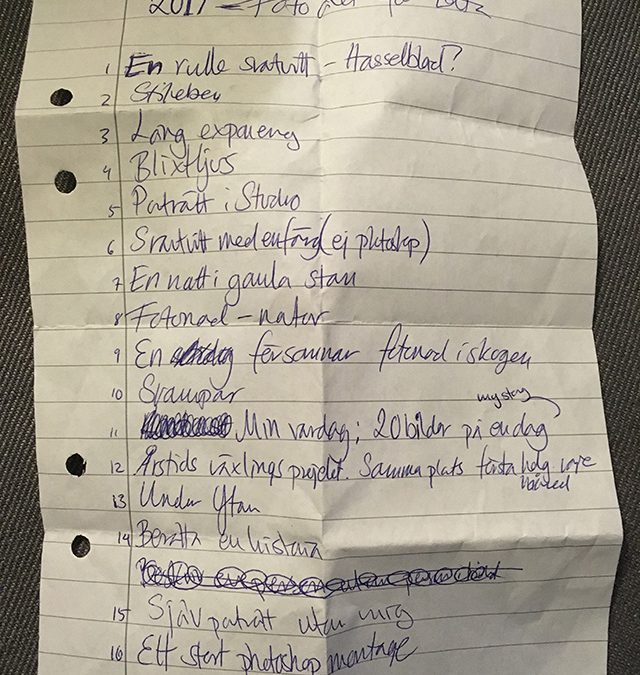 2017 ← Foto
1 En rulle svartvitt – Hasselblad?
2 Stilleben
3 Lång exponering
4 Blixtljus
5 Porträtt i Studio
6 Svartvitt med en färg (ej photoshop)
7 En natt i gamla stan
8 Fotorad – natur
9 En försommar fotorad i skogen
10 Svampar
my story
11 Min vardag; 20 bilder på en dag
12 Årstids växlings projekt. Samma plats första helg varje
månad
13 Under Ytan
14 Berätta en historia
15 Själv porträtt utan mig
16 Ett stort photoshop montage